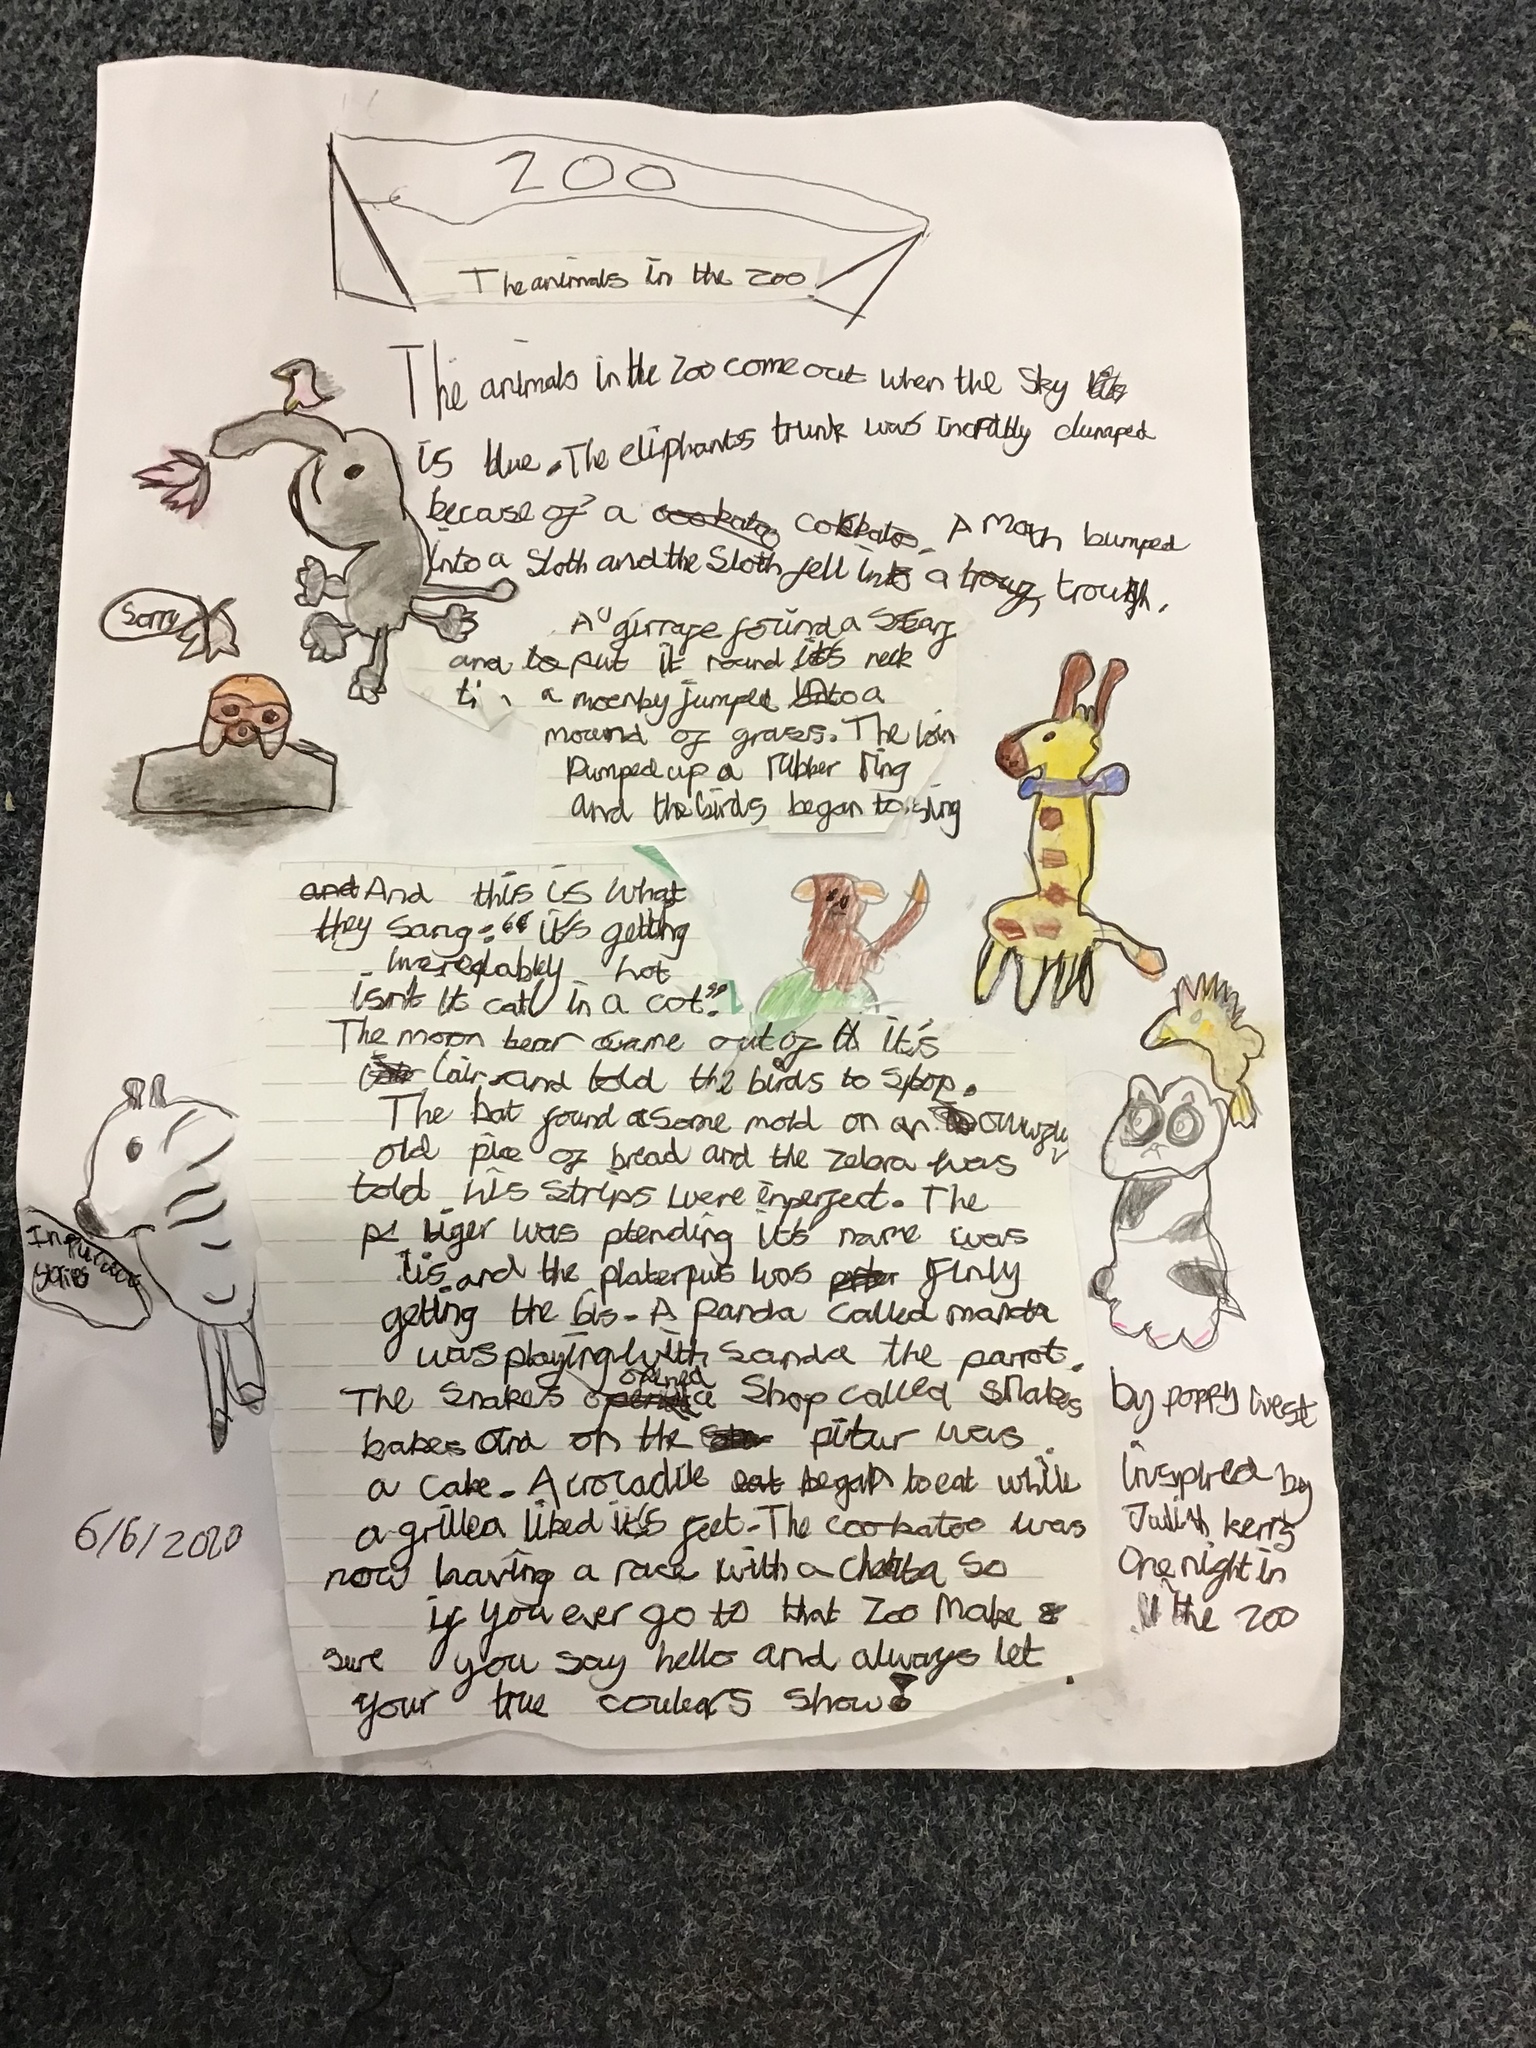 ZOO
The animals in the zoo
The animals in the Zoo come out when the sky
is blue. The eliphants trunk was incribly dumped
becase of a cookatoo cokkatoo. A Moth bumped
into a Sloth and the Sloth fell into a troug trough.
Sorry
A girrafe found a Scarf
and to put it round it's neck
a moenby jumped into a
mound of grass. The loin
Pumped up a rubber ring
and the birds began to sing
and And this is what
they sang: "it's getting
increqlably hot
isn't it cat in a cot".
The moon bear came out of it's
lair and told the birds to stop.
The bat found a some mold on an
old pice of bread and the zebra was
told his strips were inperfect. The
tiger was ptending it's name was
tis and the platerpus was finly
getting the bis. A panda called manda
was playing with Sanda the parrot.
The snakes opened a Shop called snakes
bakes and on the pitur was
a cake. A crocadile eat began to eat while
a grillea liked it's feet. The cookatoo was
now having a race with a cheeta so
if you ever go to that Zoo Make
sure you say hello and always let
your true coulers show!
strips
6/6/2020
by poppy livest
inspired by
Judith kerrs
One night in
the zoo